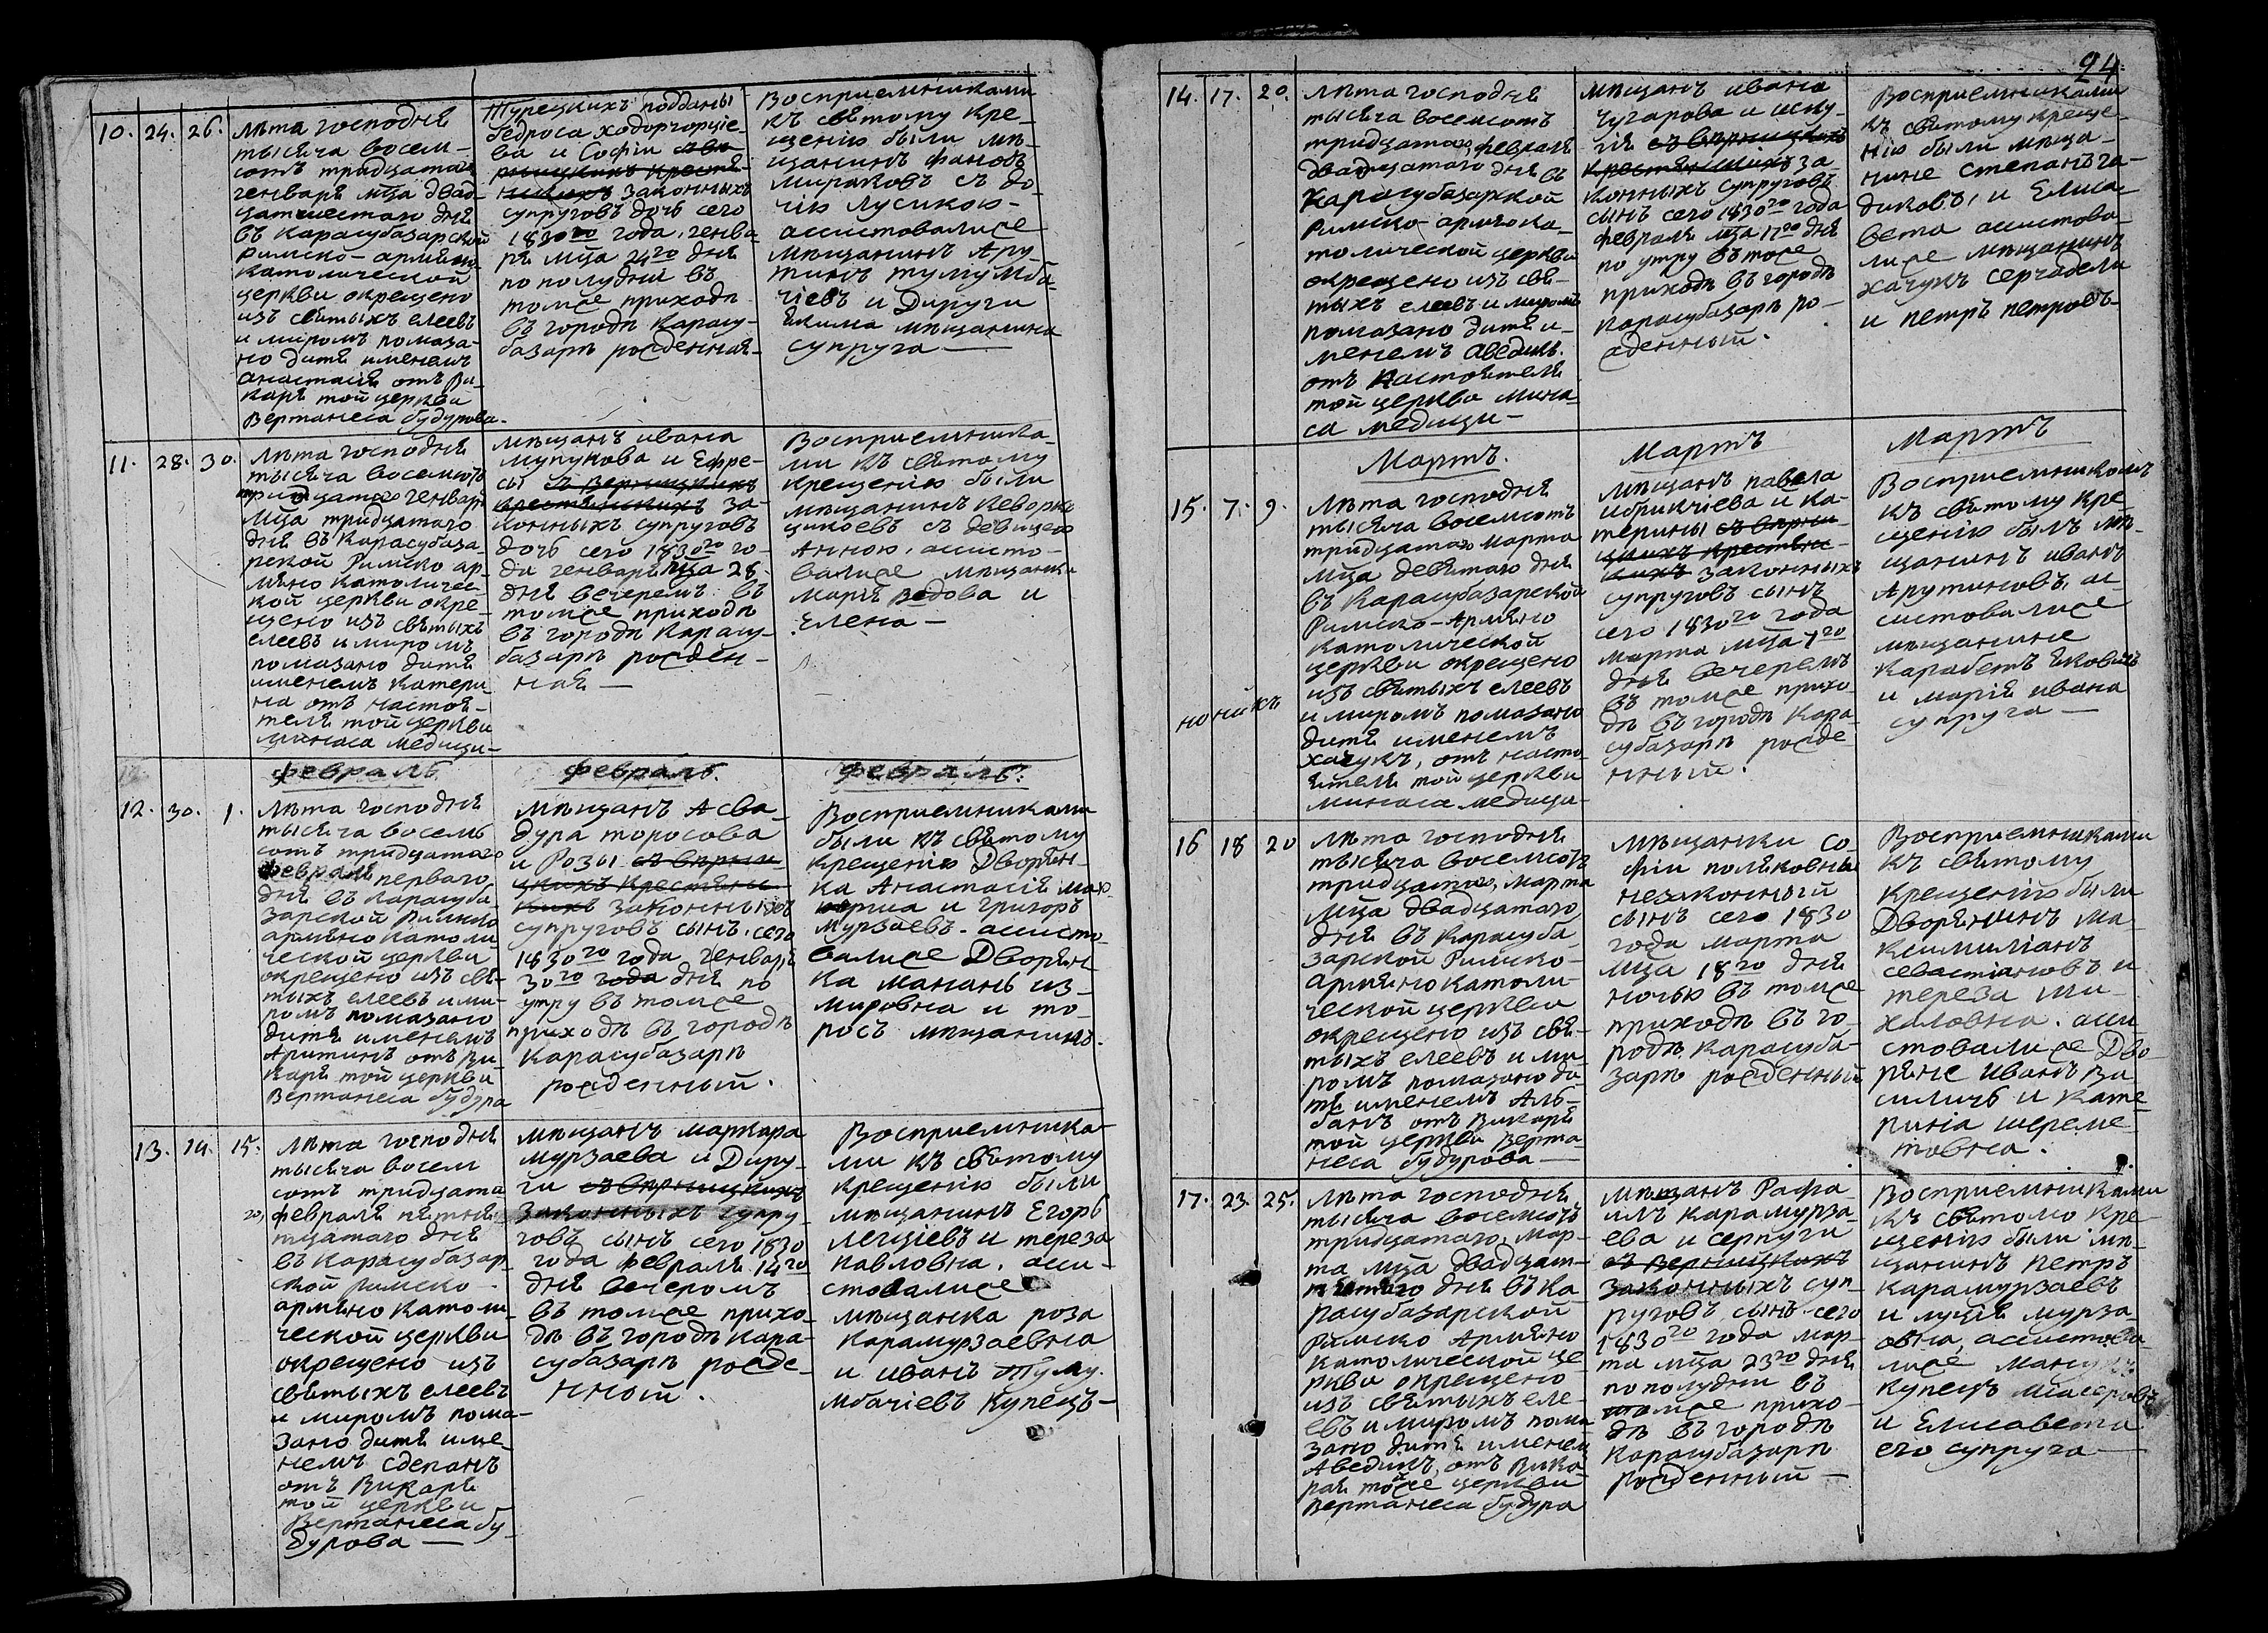 24
10. 24. 26.
лѣта господня
тысяча восем-
сотъ тридцатаго
генваря мца двад-
цатшестаго дня
въ Карасубазарской
Римско-армяно
католической
церкви окрещено
изъ святыхъ елеевъ
и миромъ помаза-
но дитя именемъ
анастасія отъ Ви-
каря той церкви
Вертанеса будурова-
Турецкихъ подданы
бедроса ходоргорціе-
ва и Софіи
законныхъ
супруговъ дочь сего
1830го года, генва
ря мца 24го дня
по полудни въ
томже приходѣ
въ городѣ Карасу-
базарѣ рожденная-
Восприемниками
къ святому кре-
щенію были мѣ-
щанинъ фаносъ
мираковъ съ до-
чію лусикою-
ассистовалисе
мѣщанинъ Ару-
тинъ тумумба-
чіевъ и Дируги
Якима мѣщанина
супруга —
11. 28. 30.
лѣта господня
тысяча восемсотъ
тридцатаго генваря
мца тридцатаго
дня въ Карасубаза-
рской Римско ар-
мяно католичес-
кой церкви окре-
щено изъ святыхъ
елеевъ и миромъ
помазано дитя
именемъ катери-
на отъ настоя-
теля той церкви
минаса медици-
мѣщанъ ивана
мупукова и Ефре-
сы съ Верницкихъ
крестянскихъ за-
конныхъ супруговъ
дочь сего 1830го го-
да генваря мца 28
дня вечеремъ въ
томже приходѣ
въ городѣ Карасу-
базарѣ рожден-
ная —
Восприемника-
ми къ святому
крещенію были
мѣщанинъ Кеворкъ
цикоевъ съ девицею
Анною, ассисто-
валисе мѣщанки
марія вдова и
Елена —
февраль
февраль.
февраль.
12. 30. 1.
лѣта господня
тысяча восемь
сотъ тридцатаго
февраля перваго
дня въ карасуба-
зарской Римско
армяно католи-
ческой церкви
окрещено изъ свя-
тыхъ елеевъ и ми-
ромъ помазано
дитя именемъ
Аритинъ отъ ви-
каря той церкви
Вертанеса будура
мѣщанъ Асва-
дура торосова
и Розы съ верни-
цкихъ крестянс
кихъ законныхъ
супруговъ сынъ, сего
1830го года генваря
30го года дня по
утру въ томже
приходѣ въ городѣ
Карасубазарѣ
рожденный.
Восприемниками
были къ святому
крещенію Дворян-
ка Анастасія мар
и григоръ
мурзаевъ. ассисто-
валисе Дворян-
ка манань из-
мировна и то-
росъ мѣщанинъ.
13. 14. 15.
20,
лѣта господня
тысяча восем
сотъ тридцата
февраля пятна
тцатаго дня
въ Карасубазар-
ской римско-
армяно Католи-
ческой церкви
окрещено изъ
святыхъ елеевъ
и миромъ пома-
зано дитя име-
немъ сдепанъ
отъ Викаря
той церкви
Вертанеса бу-
дурова —
мѣщанъ маркара
мурзаева и Диру-
ги съ Верницкихъ
законныхъ супру-
говъ сынъ сего 1830
года февраля 14го
дня вечеромъ
въ томже прихо-
дѣ въ городѣ кара-
субазарѣ рожде-
нный.
Восприемника-
ми къ святому
крещенію были
мѣщанинъ Егоръ
легціевъ и тереза
павловна. асси-
стовалисе
мѣщанка роза
карамурзаевна
и иванъ Туму-
мбачіевъ Купецъ-
14. 17. 20.
лѣта господня
тысяча восемсотъ
тридцатаго, февраля
двадцатаго дня въ
карасубазарской
Римско армянока-
толической церкви
окрещено изъ свя-
тыхъ елеевъ и миромъ
помазано дитя и-
менемъ аведикъ.
отъ Настоятеля
той церкви мина-
са медици-
мѣщанъ ивана
чугарова и
съ верницкихъ
крестянскихъ за
конныхъ супруговъ
сынъ сего 1830го года
февраля мца 17го дня
по утру въ томже
приходѣ въ городѣ
Карасубазарѣ ро-
жденный.
Восприемниками
къ святому креще-
нію были мѣща-
нине степанъ га-
диковъ, и Елиса-
вета ассистова-
лисе мѣщанинъ
хачукъ серчадели
и петръ петровъ-
Мартъ.
Мартъ
Мартъ
15. 7. 9.
лѣта господня
тысяча восемсотъ
тридцатаго марта
мца девятаго дня
въ Карасубазарской
Римско-Армяно
католической
церкви окрещено
изъ святыхъ елеевъ
и миромъ помазано
дитя именемъ
хачукъ, отъ насто-
ятеля той церкви
минаса медици-
мѣщанъ павела
ибрикчіева и ка-
терины съ верни-
цкихъ крестянс-
кихъ законныхъ
супруговъ сынъ
сего 1830го года
марта мца 7го
дня вечеремъ
въ томже прихо-
дѣ въ городѣ Кара-
субазарѣ рожде
нный.
Восприемникомъ
къ святому кре-
щенію былъ мѣ-
щанинъ иванъ
Арутиновъ, ас-
систовалисе
мѣщанине
Карабетъ Яковичъ
и марія ивана
супруга —
16 18 20
лѣта господня
тысяча восемсотъ
тридцатаго, марта
мца двадцатаго
дня въ Карасуба-
зарской Римско-
армяно католи-
ческой церкви
окрещено изъ свя-
тыхъ елеевъ и ми-
ромъ помазано ди-
тя именемъ Аль-
банъ отъ Викаря
той церкви Верта-
неса будурова —
мѣщанки Со-
фіи поляковны
незаконный
сынъ сего 1830
года марта
мца 18го дня
ночью въ томже
приходѣ въ го-
родѣ Карасуба-
зарѣ рожденный
Восприемниками
къ святому
крещенію были
Дворянинъ ма-
ксимиліанъ
севастіановъ и
тереза ми-
халовна. асси-
стовалисе Дво-
ряне иванъ ва-
силичь и кате-
ринia шереме-
товна.
17. 23. 25.
лѣта господня
тысяча восемсотъ
тридцатаго, мар-
та мца двадцат-
пятаго дня въ Ка
расубазарской
Римско Армяно
католической це
ркви окрещено
изъ святыхъ еле-
евъ и миромъ пома
зано дитя именем
Аведикъ, отъ Вика-
ря тоже церкви
Вертанеса будура
мѣщанъ Рафа-
илъ карамурза-
ева и серпуги
съ Верницкихъ
законныхъ суп-
руговъ сынъ сего
1830го года мар-
та мца 23го дня
по полудни въ
томже прихо-
дѣ въ городѣ
Карасубазарѣ
Рожденный —
Восприемниками
къ святомо кре-
щенію были мѣ-
щанинъ петръ
карамурзаевъ
и луція мурза-
овна, ассистова-
лисе
купецъ
и Елисавета
его супруга —